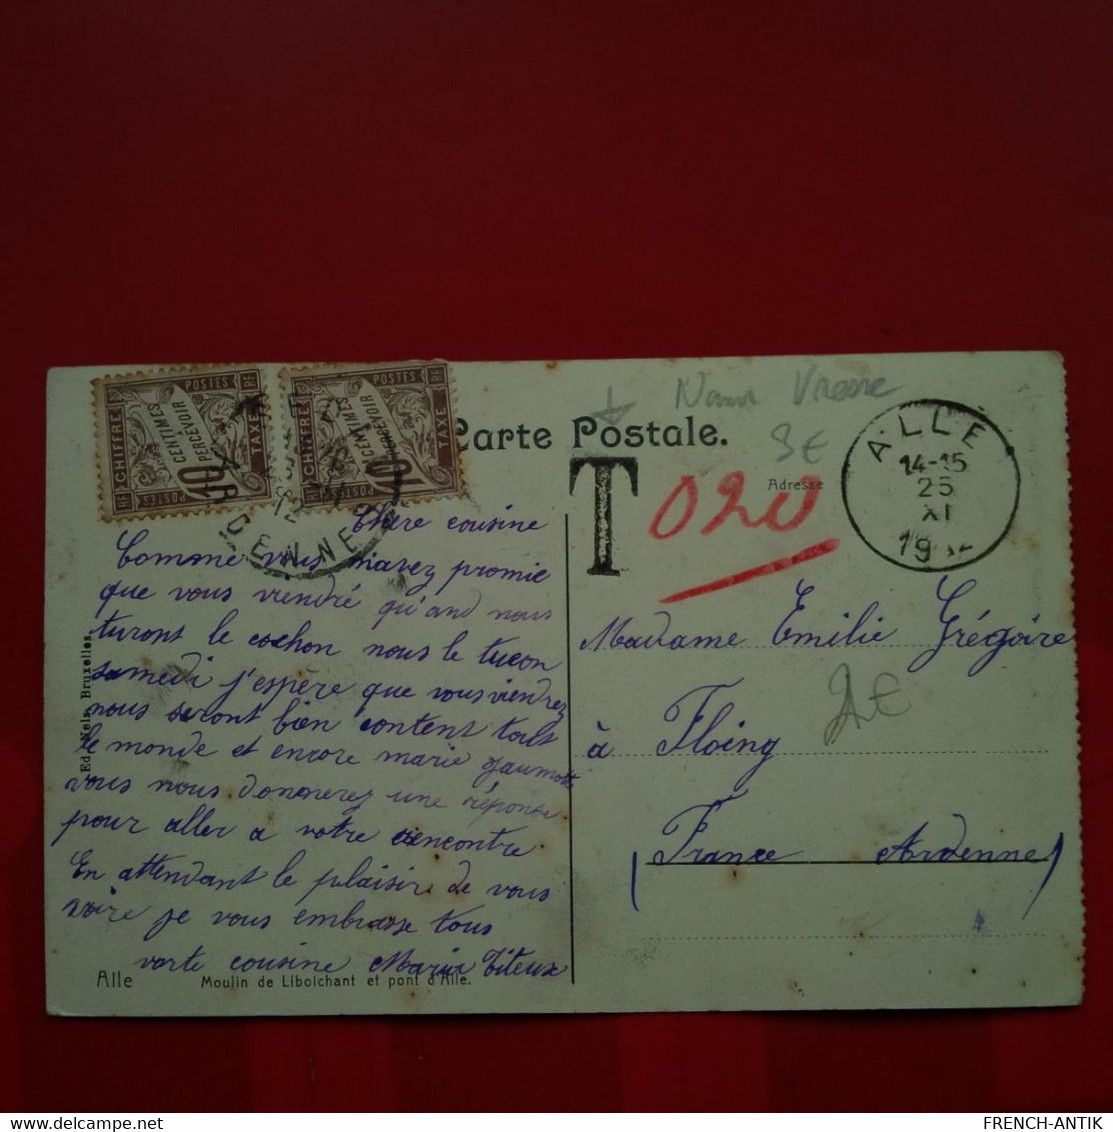 Nam Vresse
Carte Postale.
3€
Adresse
T
020
ALLE
14-15
25
XI
19
CHIFFRE
POSTES
TAXE
10
CENTIMES
A
PERCEVOIR
RF
CHIFFRE
POSTES
TAXE
10
CENTIMES
A
PERCEVOIR
RF
ARDENNES
12
Chère cousine
Comme vous m'avez promie
que vous viendré qu'and nous
turont le cochon nous le tucon
samedi j'espère que vous viendrez
nous seront bien content tout
le monde et encore marie
vous nous donnerez une réponse
pour aller a votre rencontre
En attendant le plaisir de vous
voire je vous embrasse tous
votre cousine Maria Titeux
Madame Emilie Grégoire
2€
à Floing
(France Ardenne)
Ed. Nels, Bruxelles.
Alle Moulin de Libolchant et pont d'Alle.
FRENCH-ANTIK